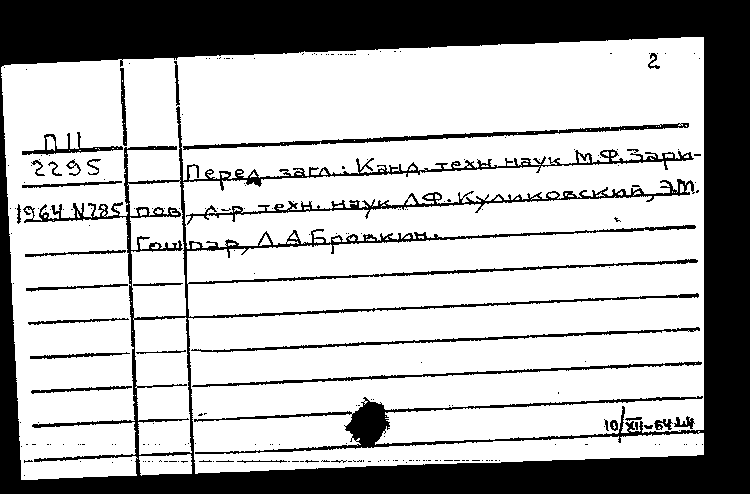 2
П II
2295
Перед загл.: Канд. техн. наук М.Ф. Зари-
1964 N785 пов, д-р техн. наук Л.Ф. Куликовский, Э.М.
Гошпар, Л.А. Бровкин.
10/XII-64